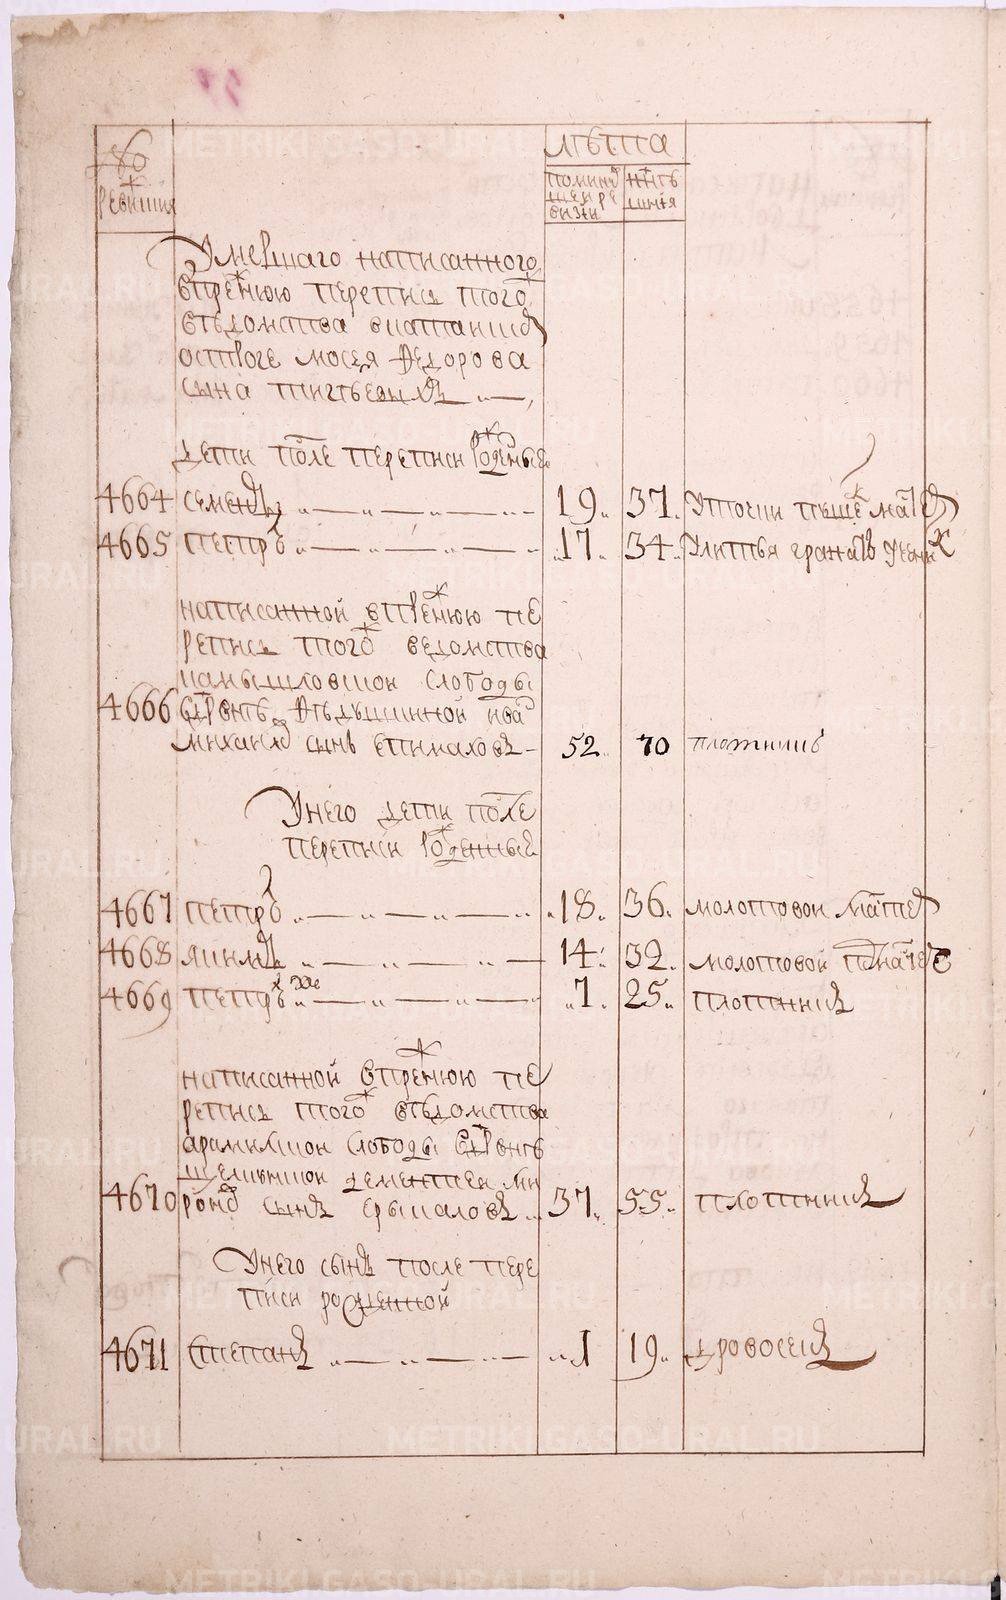 №
ревизии
лѣта
по минув
шей ре
визи
нынѣ
шния
Умершаго написанного
в прежнюю перепись того
ведомства в катайском
остроге Мосея Федорова
сына
дети после переписи рожденые
4664 Семенъ 19 37 У точки пушек мастер
4665 Петръ 17 34 У литья гранатъ ученик
написанной в прежнюю пе
репись того ведомства
камышловской слободы
4666 в деревнѣ Ѳедюшиной
Михаило сынъ Епимаховъ 52 70 плотникъ
У него дети после
переписи рожденныи
4667 Петръ 18 36 молотовои мастер
4668 Якимъ 14 32 молотовой подмастерье
4669 Петръ же 7 25 плотникъ
написанной в прежнюю пе
репись того ведомства
арамильской слободы в деревнѣ
4670 сынъ 37 55 плотникъ
У него сынъ после пере
писи рожденной
4671 Степанъ 1 19 дровосекъ
METRIKI.GASO-URAL.RU